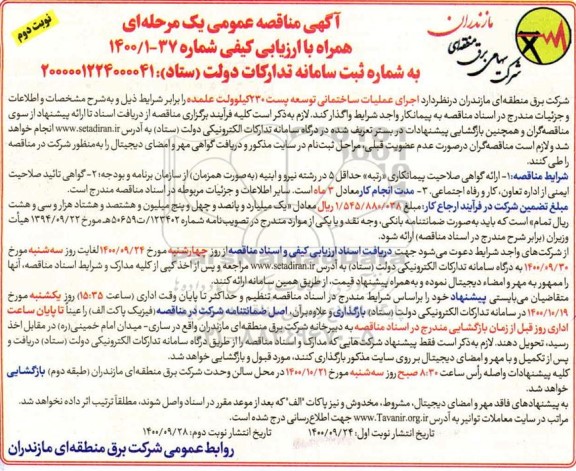 نوبت دوم
آگهی مناقصه عمومی یک مرحله‌ای
همراه با ارزیابی کیفی شماره ۳۷-۱۴۰۰/۱
به شماره ثبت سامانه تدارکات دولت (ستاد):۲۰۰۰۰۰۱۲۲۴۰۰۰۰۴۱
مازندران
شرکت سهامی برق منطقه‌ای
شرکت برق منطقه‌ای مازندران درنظردارد اجرای عملیات ساختمانی توسعه پست ۲۳۰کیلوولت علمده را برابر شرایط ذیل و به‌شرح مشخصات و اطلاعات
و جزئیات مندرج در اسناد مناقصه به پیمانکار واجد شرایط واگذار کند. لازم به‌ذکر است کلیه فرآیند برگزاری مناقصه از دریافت اسناد تا ارائه پیشنهاد از سوی
مناقصه‌گران و همچنین بازگشایی پیشنهادات در بستر تعریف شده در درگاه سامانه تدارکات الکترونیکی دولت (ستاد) به آدرس www.setadiran.ir انجام خواهد
شد و لازم است مناقصه‌گران درصورت عدم عضویت قبلی، مراحل ثبت‌نام در سایت مذکور و دریافت گواهی مهر و امضای دیجیتال را به‌منظور شرکت در مناقصه
را طی کنند.
شرایط مناقصه:۱- ارائه گواهی صلاحیت پیمانکاری «رتبه» حداقل ۵ در رشته نیرو و ابنیه (به‌صورت همزمان) از سازمان برنامه و بودجه؛۲-گواهی تائید صلاحیت
ایمنی از اداره تعاون، کار و رفاه اجتماعی. ۳- مدت انجام کار معادل ۳ ماه است. سایر اطلاعات و جزئیات مربوطه در اسناد مناقصه مندرج است.
مبلغ تضمین شرکت در فرآیند ارجاع کار: مبلغ ۱/۵۴۵/۸۸۰/۰۳۸ ریال معادل «یک میلیارد و پانصد و چهل و پنج میلیون و هشتصد و هشتاد هزار و سی و هشت
ریال تمام» است که باید به‌صورت ضمانتنامه بانکی، وجه نقد و یا یکی از موارد مندرج در تصویب‌نامه شماره ۱۲۳۴۰۲/ت۵۰۶۵۹هـ مورخ ۱۳۹۴/۰۹/۲۲ هیأت
وزیران (برابر شرح مندرج در اسناد مناقصه) ارائه شود.
از شرکت‌های واجد شرایط دعوت می‌شود جهت دریافت اسناد ارزیابی کیفی و اسناد مناقصه از روز چهارشنبه مورخ ۱۴۰۰/۰۹/۲۴ لغایت روز سه‌شنبه مورخ
۱۴۰۰/۰۹/۳۰ به درگاه سامانه تدارکات الکترونیکی دولت (ستاد) به آدرس www.setadiran.ir مراجعه و پس از اخذ کپی از کلیه مدارک و شرایط اسناد مناقصه، آنها
را ممهور به مهر و امضاء دیجیتال نموده و به‌همراه پیشنهاد قیمت، از طریق همین سامانه ارائه کنند.
متقاضیان می‌بایستی پیشنهاد خود را براساس شرایط مندرج در اسناد مناقصه تنظیم و حداکثر تا پایان وقت اداری (ساعت ۱۵:۳۵) روز یکشنبه مورخ
۱۴۰۰/۱۰/۱۹ در سامانه تدارکات الکترونیکی دولت (ستاد) بارگذاری و علاوه‌برآن اصل ضمانتنامه شرکت در مناقصه (فیزیک پاکت الف) را عیناً تا پایان ساعت
اداری روز قبل از زمان بازگشایی مندرج در اسناد مناقصه به دبیرخانه شرکت برق منطقه‌ای مازندران واقع در ساری- میدان امام خمینی(ره) در مقابل اخذ
رسید، تحویل دهند. لازم به ذکر است فقط پیشنهاد شرکت‌هایی که مدارک و اسناد مناقصه را از طریق درگاه سامانه تدارکات الکترونیکی دولت (ستاد) دریافت و
پس از تکمیل و با مهر و امضای دیجیتال بر روی سایت مذکور بارگذاری کنند، مورد قبول و بازگشایی خواهد شد.
کلیه پیشنهادات واصله رأس ساعت ۸:۳۰ صبح روز سه‌شنبه مورخ ۱۴۰۰/۱۰/۲۱ در محل سالن وحدت شرکت برق منطقه‌ای مازندران (طبقه دوم) بازگشایی
خواهد شد.
به پیشنهادهای فاقد مهر و امضای دیجیتال، مشروط، مخدوش و نیز پاکات "الف" که بعد از موعد مقرر در اسناد واصل شوند، مطلقاً ترتیب اثر داده نخواهد شد.
مراتب در سایت معاملات توانیر به آدرس www.Tavanir.org.ir جهت اطلاع‌رسانی درج شده است.
تاریخ انتشار نوبت اول: ۱۴۰۰/۰۹/۲۴ تاریخ انتشار نوبت دوم: ۱۴۰۰/۰۹/۲۸
روابط عمومی شرکت برق منطقه‌ای مازندران